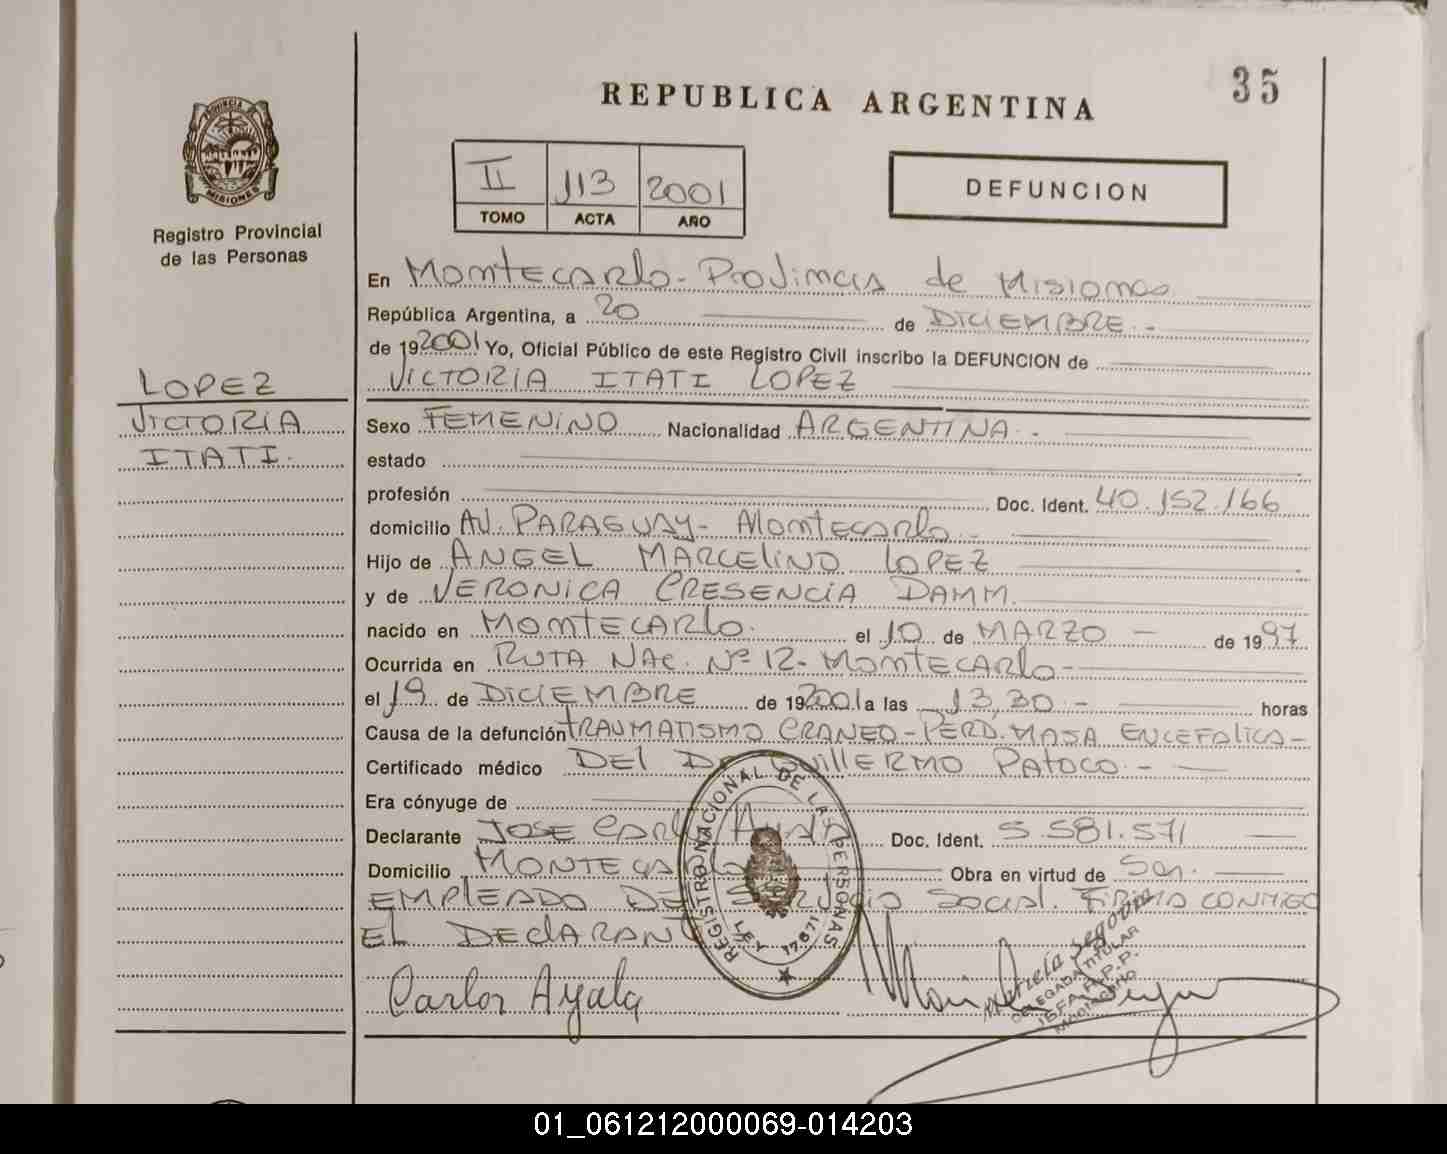 35
REPUBLICA ARGENTINA
PROVINCIA
MISIONES
Registro Provincial
de las Personas
II 113 2001
TOMO ACTA AÑO
DEFUNCION
En Montecarlo - Provincia de Misiones
República Argentina, a 20 de DICIEMBRE.-
de 192001 Yo, Oficial Público de este Registro Civil inscribo la DEFUNCION de
VICTORIA ITATI LOPEZ
LOPEZ
VICTORIA
ITATI.
Sexo FEMENINO Nacionalidad ARGENTINA.-
estado
profesión Doc. Ident. 40.152.166
domicilio AV. PARAGUAY - Montecarlo.-
Hijo de ANGEL MARCELINO LOPEZ
y de VERONICA CRESENCIA DAMM.
nacido en MONTECARLO. el 10 de MARZO - de 1997
Ocurrida en RUTA NAC. Nº 12 - MONTECARLO -
el 19 de DICIEMBRE de 192001 a las 13,30 - horas
Causa de la defunción TRAUMATISMO CRANEO - PERD. MASA ENCEFALICA -
Certificado médico DEL DR GUILLERMO PATOCO.-
Era cónyuge de
Declarante JOSE CARLOS AYALA Doc. Ident. 5.581.571
Domicilio MONTECARLO Obra en virtud de Ser.
EMPLEADO DE SERVICIO SOCIAL. FIRMA CONMIGO
EL DECLARANTE
REGISTRO NACIONAL DE LAS PERSONAS
LEY 17671
Carlos Ayala
Segovia
DELEGADA TITULAR
01_061212000069-014203